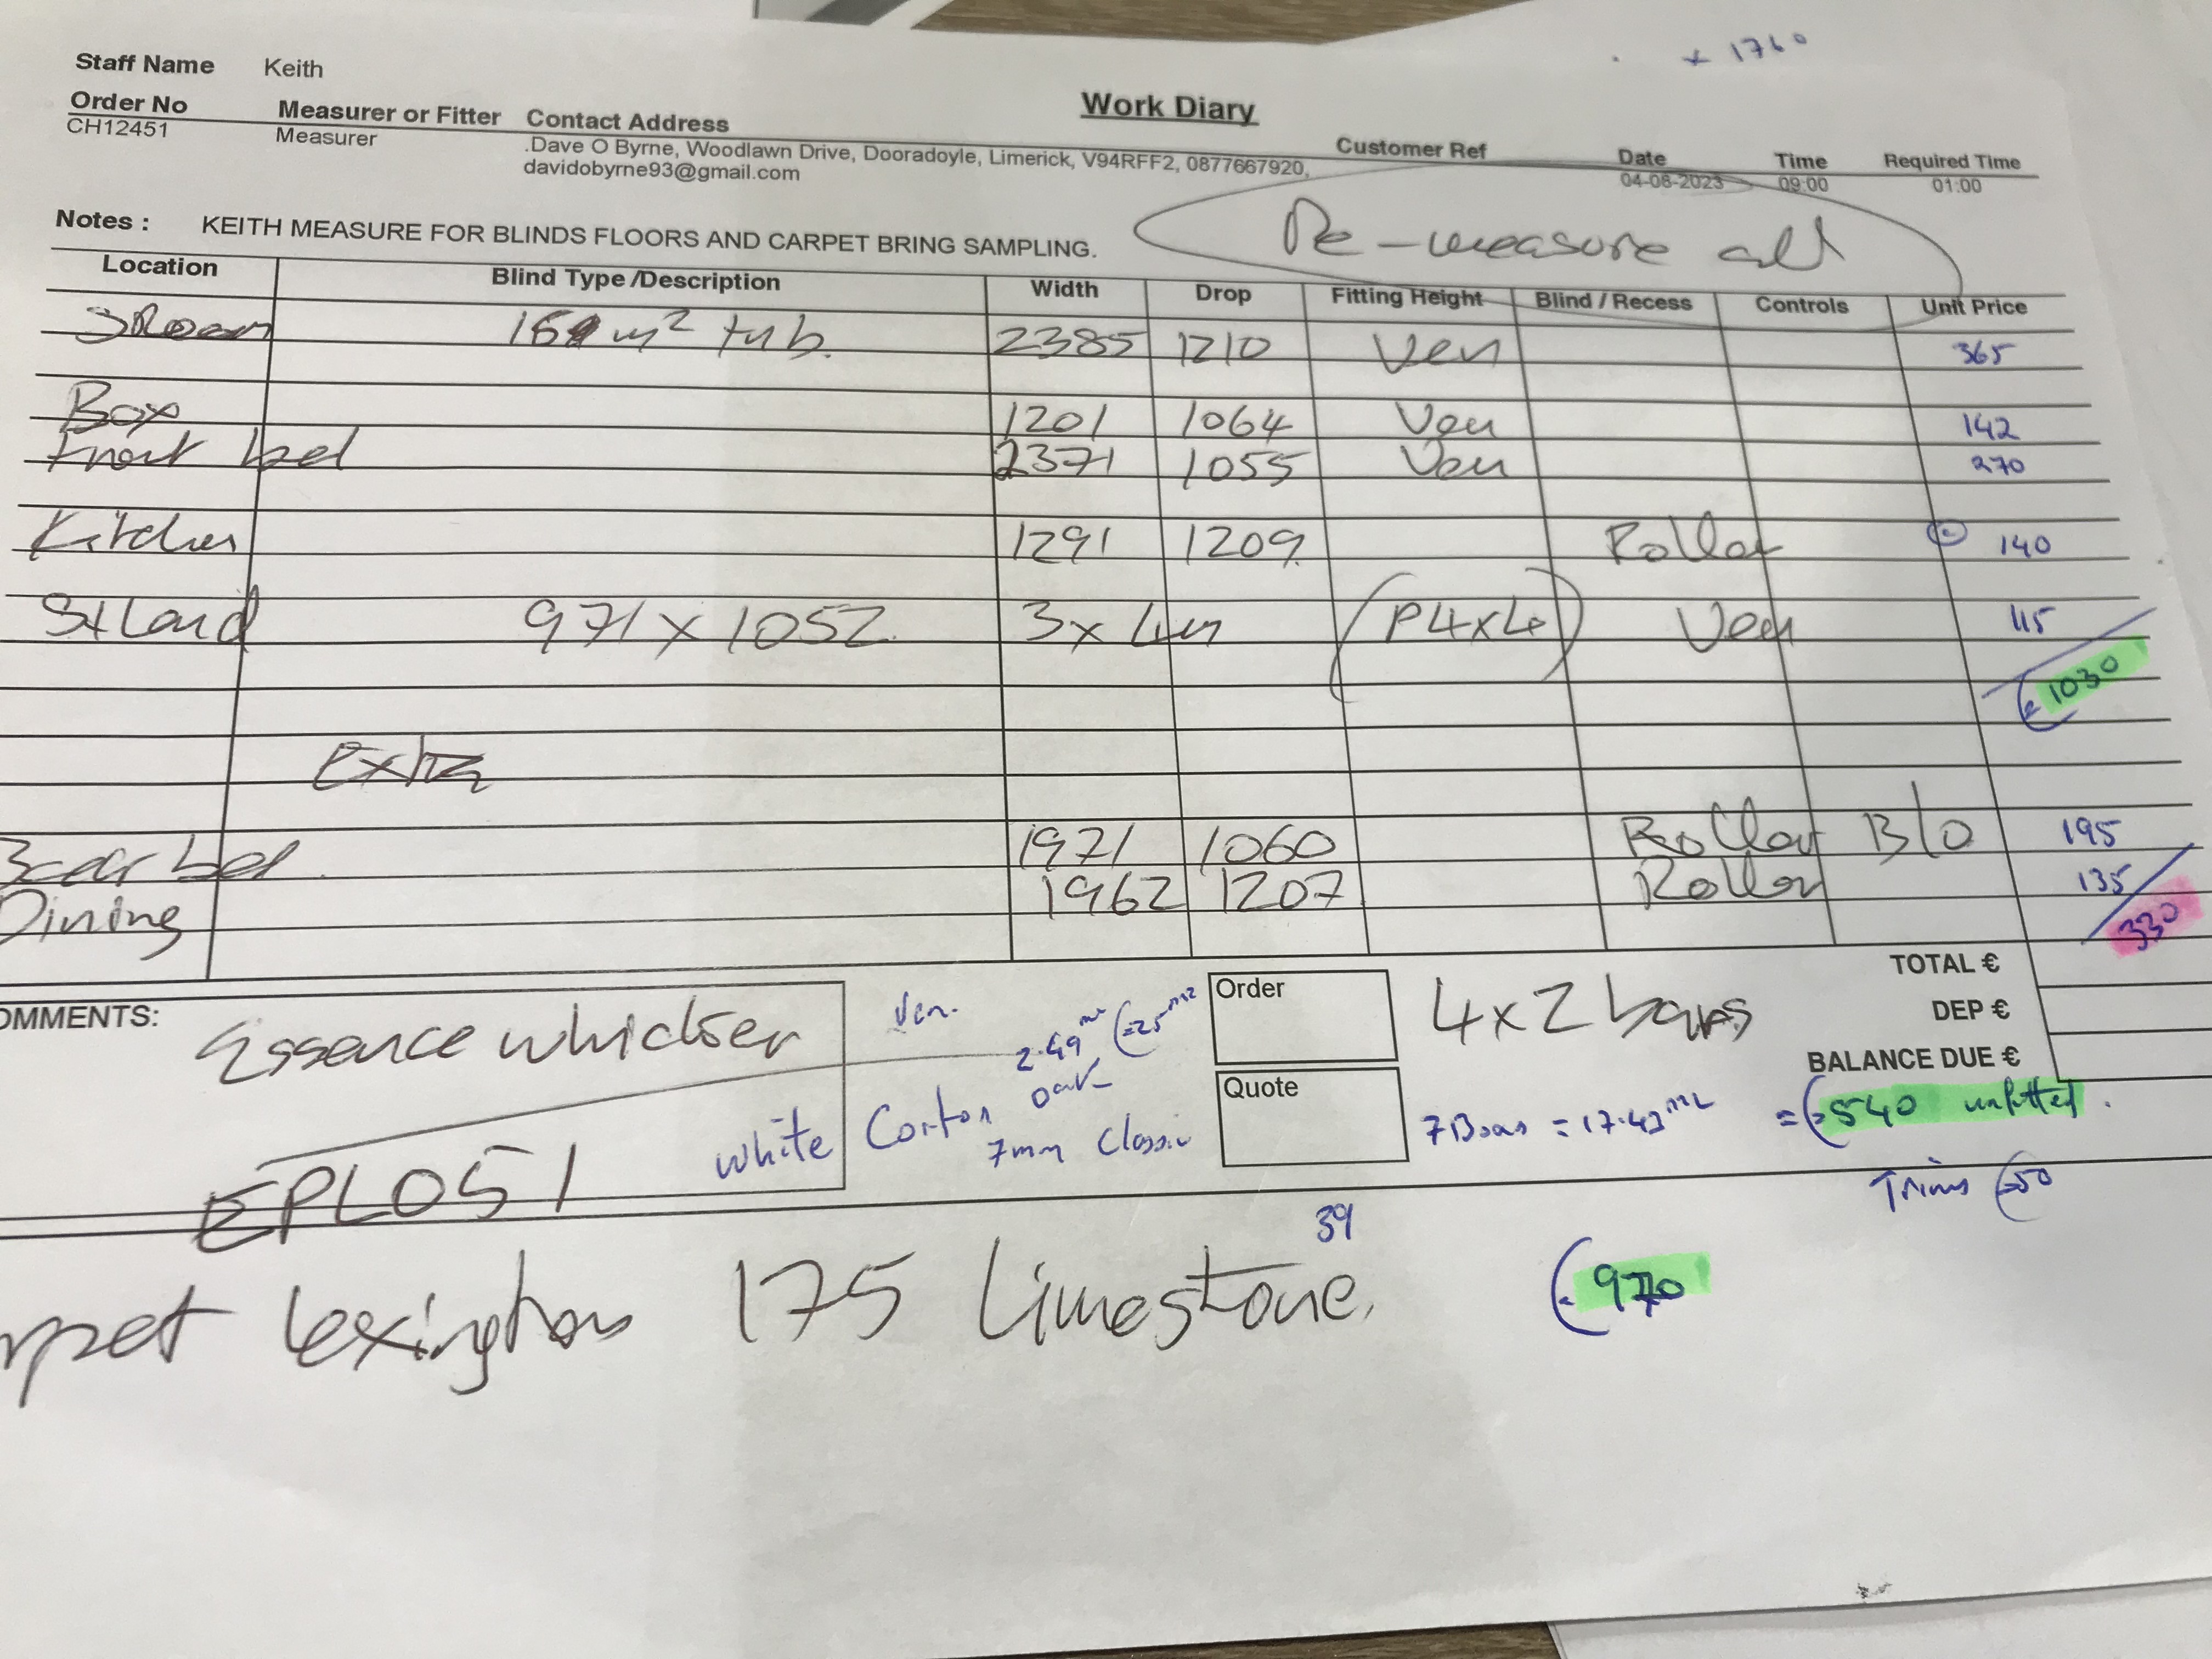 x 1760
Staff Name Keith
Work Diary
Order No Measurer or Fitter Contact Address Customer Ref Date Time Required Time
CH12451 Measurer .Dave O Byrne, Woodlawn Drive, Dooradoyle, Limerick, V94RFF2, 0877667920, 04-08-2023 09:00 01:00
davidobyrne93@gmail.com
Notes : KEITH MEASURE FOR BLINDS FLOORS AND CARPET BRING SAMPLING.
Re-measure all
Location Blind Type /Description Width Drop Fitting Height Blind / Recess Controls Unit Price
m² tub. 2385 1210 Ven 365
Box 1201 1064 Ven 142
Front bed 2371 1055 Ven 270
Kitchen 1291 1209 Roller € 140
971 x 1052 3x (P4x4) Ven 115
€1030
Extra
bed 1971 1060 Roller B/o 195
Dining 1962 1207 Roller 135
330
OMMENTS: Essence
Ven.
2.49m² €25m²
Order
4x2 bars
TOTAL €
DEP €
BALANCE DUE €
EPL051
White Oak
7mm Classic
Quote
7 = 17.43m² = €540 unfitted.
Trims €50
39
rpet Lexington 175 Limestone. €970